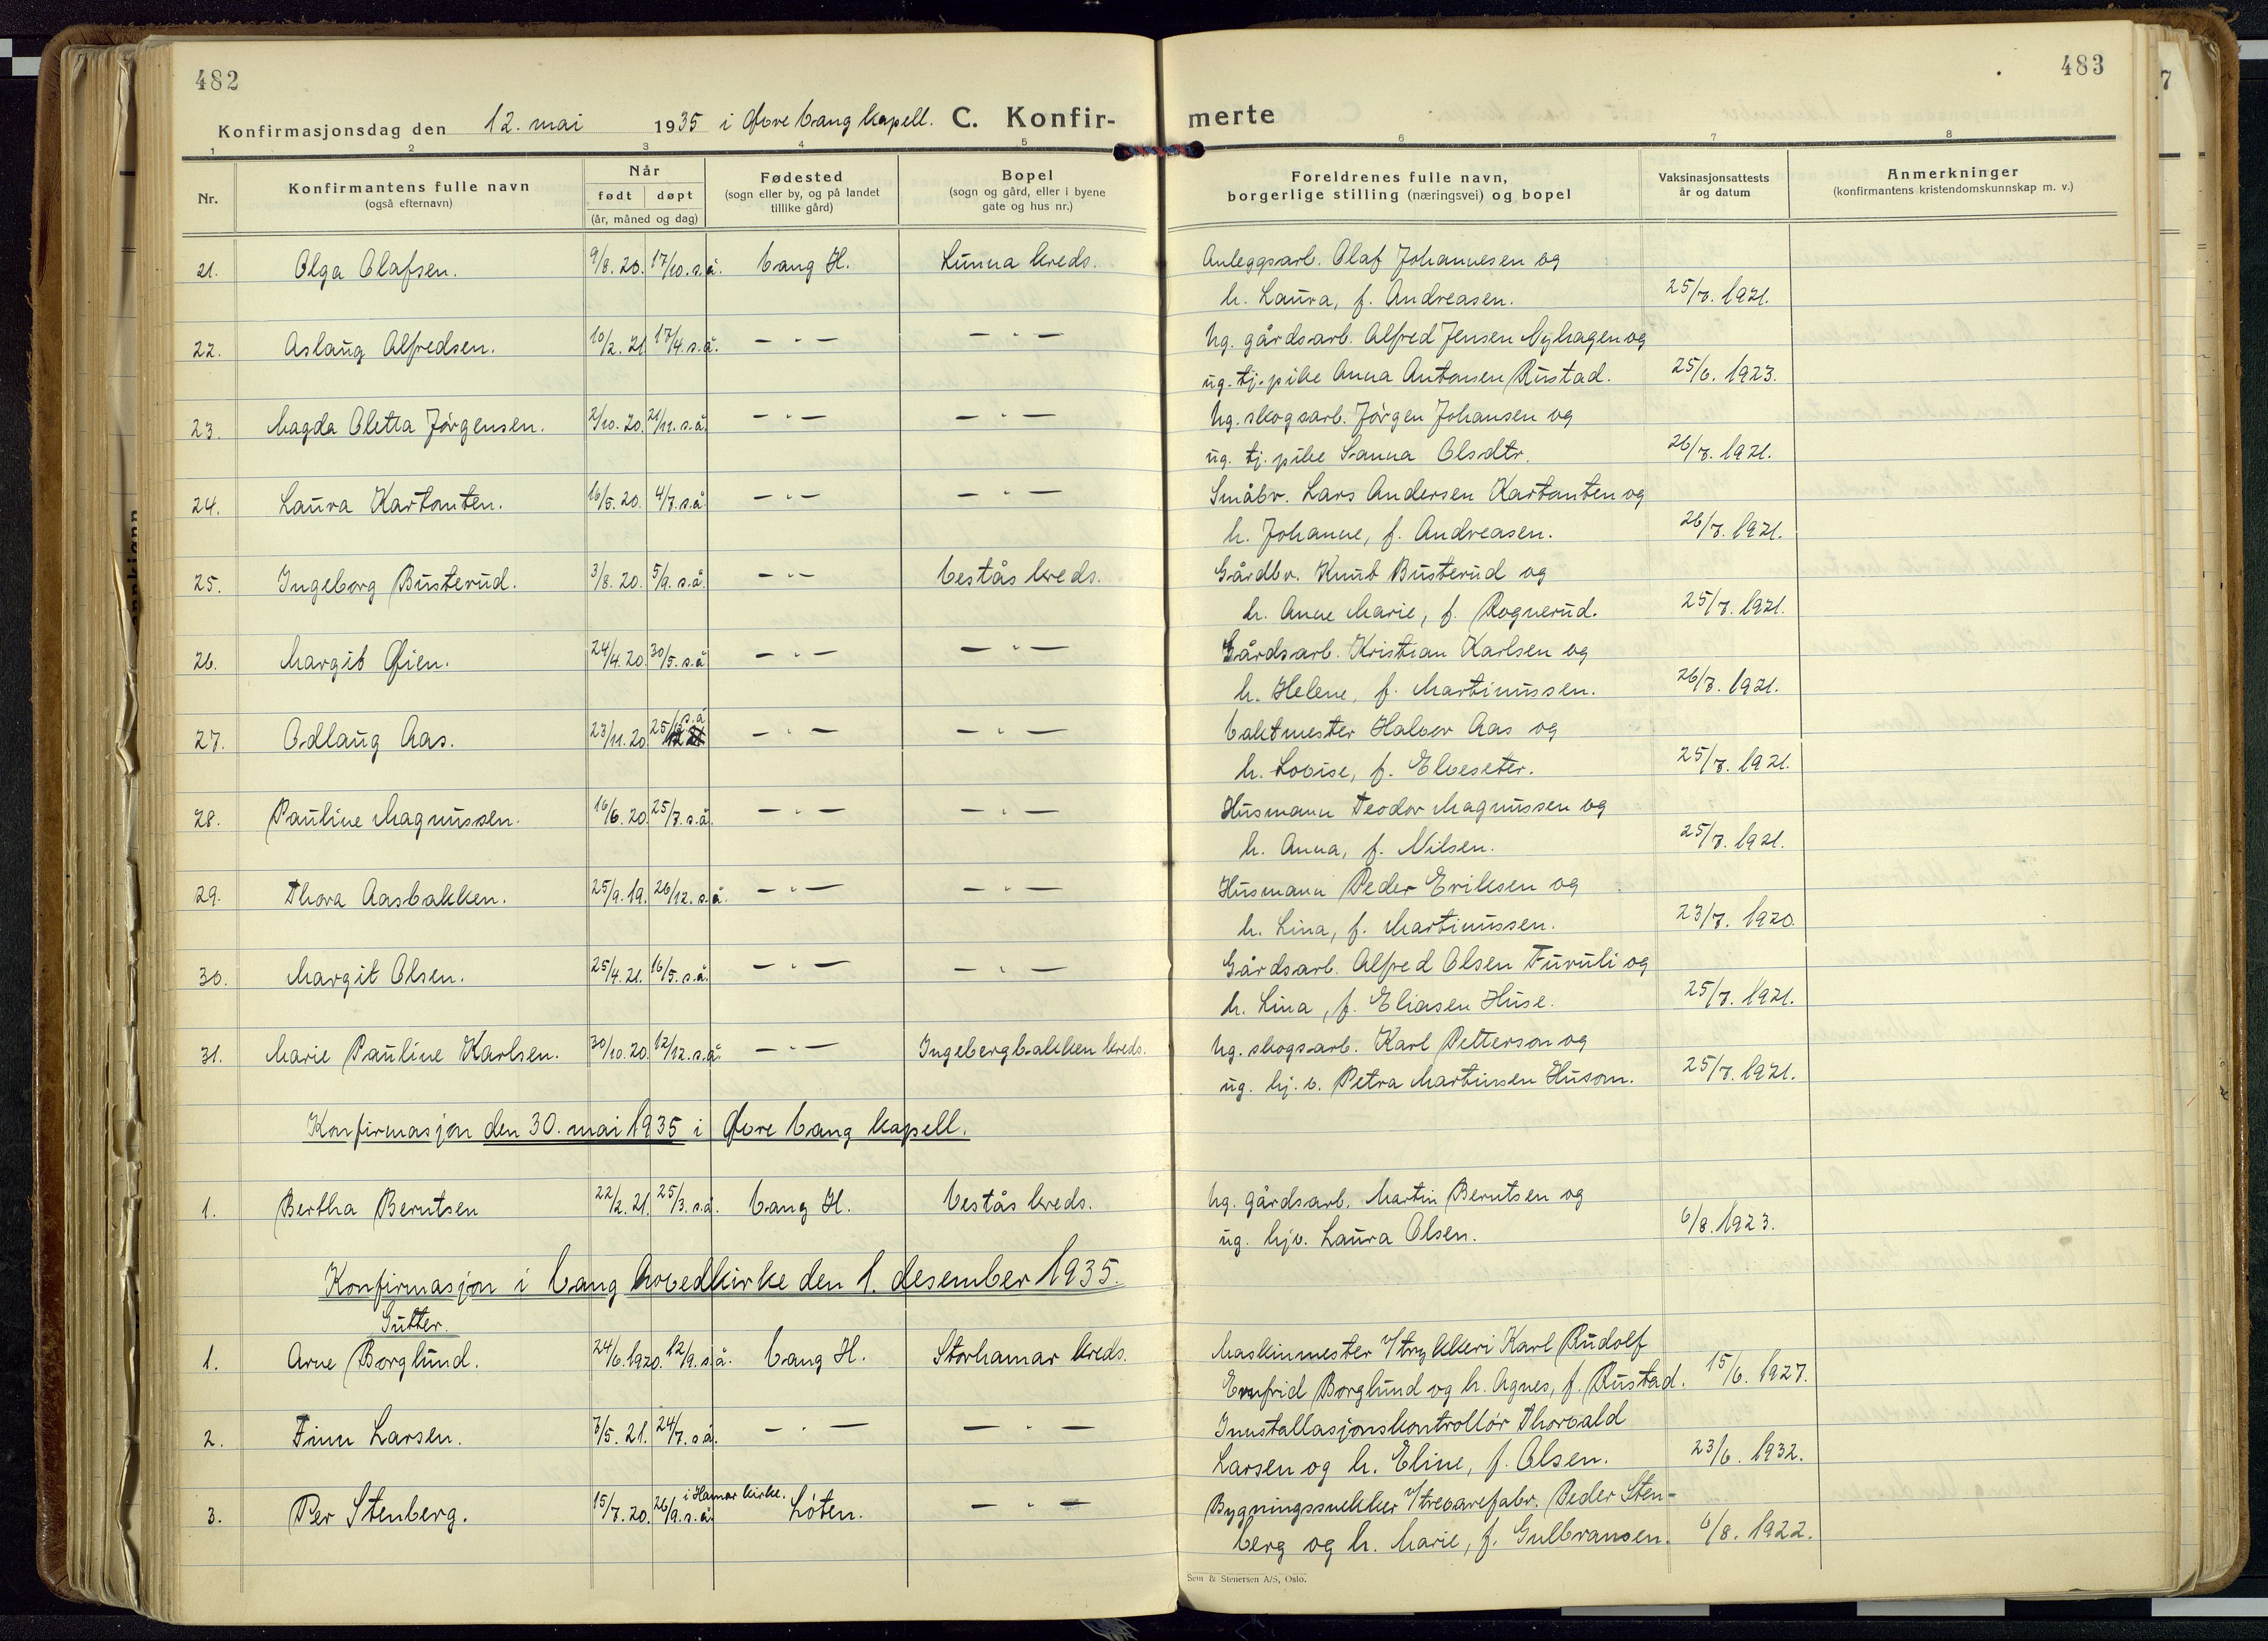 482
483
Konfirmasjonsdag den 12. mai 1935 i Øvre Vang kapell. C. Konfir-
merte
1 2 3 4 5 6 7 8
Nr.
Konfirmantens fulle navn
(også efternavn)
Når
født døpt
(år, måned og dag)
Fødested
(sogn eller by, og på landet
tillike gård)
Bopel
(sogn og gård, eller i byene
gate og hus nr.)
Foreldrenes fulle navn,
borgerlige stilling (næringsvei) og bopel
Vaksinasjonsattests
år og datum
Anmerkninger
(konfirmantens kristendomskunnskap m. v.)
21. Olga Olafsen. 9/8. 20. 17/10. s.å. Vang H. Lunna kreds. Anleggsarb. Olaf Johannesen og
h. Laura, f. Andreasen. 25/7. 1921.
22. Aslaug Alfredsen. 10/2. 21 17/4. s.å. — " — — " — Ug. gårdsarb. Alfred Jensen Nyhagen og
ug. tj. pike Anna Antonsen Rustad. 25/6. 1923.
23. Magda Oletta Jørgensen. 2/10. 20. 21/11. s.å. — " — — " — Ug. skogsarb. Jørgen Johansen og
ug. tj. pike Sanna Olsdtr. 26/7. 1921.
24. Laura Kartonten. 16/5. 20. 4/7. s.å. — " — — " — Småbr. Lars Andersen Kartonten og
h. Johanne, f. Andreasen. 26/7. 1921.
25. Ingeborg Busterud. 3/8. 20. 5/9. s.å. — " — Vestås kreds. Gårdbr. Knut Busterud og
h. Anne Marie, f. Rognerud. 25/7. 1921.
26. Margit Øien. 24/4. 20. 30/5. s.å — " — — " — Gårdsarb. Kristian Karlsen og
h. Helene, f. Martinussen. 26/7. 1921.
27. Odlaug Aas. 23/11. 20 25/12 s.å — " — — " — Vaktmester Halvor Aas og
h. Lovise, f. Elveseter. 25/7. 1921.
28. Pauline Magnussen. 16/6. 20. 25/7. s.å. — " — — " — Husmann Teodor Magnussen og
h. Anna, f. Nilsen. 25/7. 1921.
29. Thora Aasbakken. 25/9. 19. 26/12. s.å. — " — — " — Husmann Peder Eriksen og
h. Lina, f. Martinussen. 23/7. 1920.
30. Margit Olsen. 25/4. 21. 16/5. s.å. — " — — " — Gårdsarb. Alfred Olsen Furuli og
h. Lina, f. Eliasen Huse. 25/7. 1921.
31. Marie Pauline Karlsen. 30/10. 20. 12/12. s.å. — " — Ingebergbakken kreds. Ug. skogsarb. Karl Petterson og
ug. hj. v. Petra Martinsen Husom. 25/7. 1921.
Konfirmasjon den 30. mai 1935 i Øvre Vang kapell.
1. Bertha Berntsen 22/2. 21. 25/3. s.å. Vang H. Vestås kreds. Ug. gårdsarb. Martin Berntsen og
ug. hjv. Laura Olsen. 6/8. 1923.
Konfirmasjon i Vang hovedkirke den 1. desember 1935.
Gutter.
1. Arne Borglund. 24/6. 1920. 12/9. s.å. Vang H. Storhamar kreds. Maskinmester v/trykkeri Karl Rudolf
Ernfrid Borglund og h. Agnes, f. Rustad. 15/6. 1927.
2. Finn Larsen. 7/5. 21. 24/7. s.å. — " — — " — Innstallasjonskontrollør Thorvald
Larsen og h. Eline, f. Olsen. 23/6. 1932.
3. Per Stenberg. 15/7. 20. 26/9. s.å. i Hamar kirke. Løten. — " — Bygningssnekker v/trevarefabr. Peder Sten-
berg og h. Marie, f. Gulbransen. 6/8. 1922.
Sem & Stenersen A/S, Oslo.